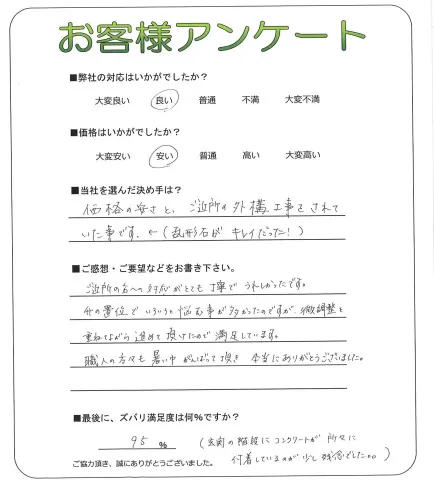 お客様アンケート
■弊社の対応はいかがでしたか?
大変良い 良い 普通 不満 大変不満
■価格はいかがでしたか?
大変安い 安い 普通 高い 大変高い
■当社を選んだ決め手は?
価格の安さと、ご近所の外構工事をされて
いた事です。←(乱形石がキレイだった!)
■ご感想・ご要望などをお書き下さい。
ご近所の方への対応がとても丁寧でうれしかったです。
の置位でいろいろと悩む事が多かったのですが、微調整を
重ねながら進めて頂けたので満足しています。
職人の方々も暑い中がんばって頂き本当にありがとうございました。
■最後に、ズバリ満足度は何%ですか?
95 % (玄関の階段にコンクリートが所々に
付着しているのが少し残念でした。。)
ご協力頂き、誠にありがとうございました。